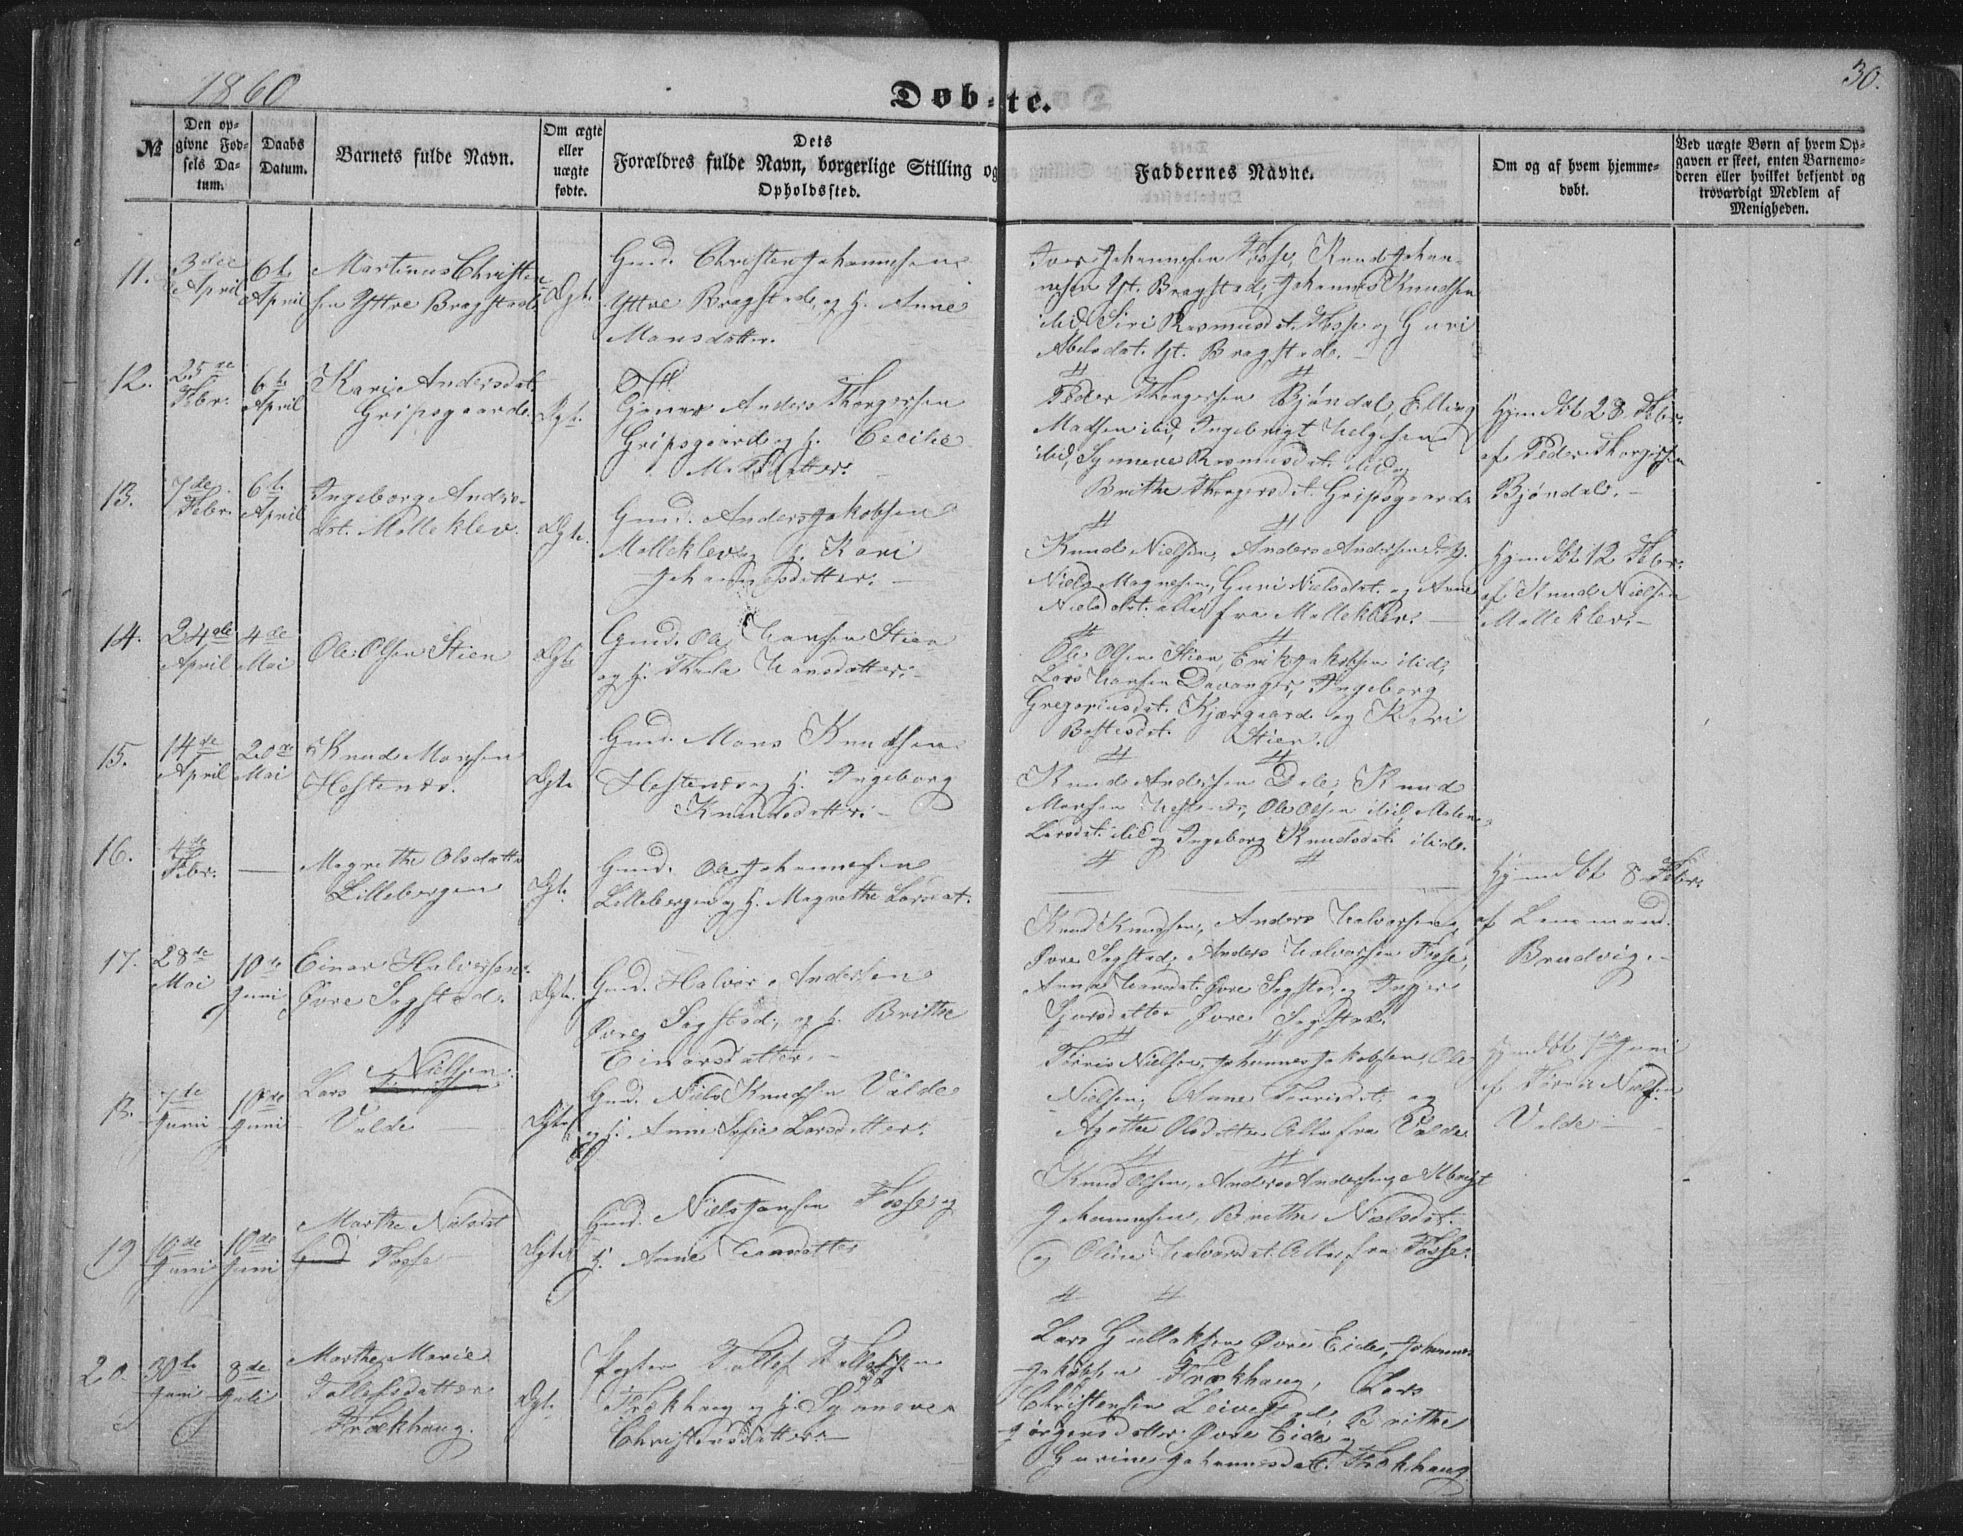 1860
Døbte.
30.
№
Den opgivne Fødsels Datum.
Daabs Datum.
Barnets fulde Navn.
Om ægte eller uægte fødte.
Dets Forældres fulde Navn, borgerlige Stilling og Opholdssted.
Faddernes Navne.
Om og af hvem hjemmedøbt.
Ved uægte Børn af hvem Opgaven er skeet, enten Barnemoderen eller hvilket bekjendt og troværdigt Medlem af Menigheden.
11.
April
6te April
Martinus Christensen Yttre Bragstad
Ægte
Gmd. Christen Johannesen
Yttre Bragstad, og H. Anne
Monsdatter.
Iver Johannesen Fosse, Knud Johannesen Yt. Bragstad, Johannes Knudsen
ibid, Siri Rasmusdt. Fosse og Guri
Abelsdat. Yt. Bragstad.
12.
25de Febr.
6te April
Kari Andersdat. Gripsgaard
Ægte
Anders Thorgersen
Gripsgaard og H. Cecilie
Peder Thorgersen Bjøndal, Elling
Madsen ibid, Ingebrigt Helgesen
ibid, Synneve Rasmusdt. ibid og
Brithe Thorgersdt. Gripsgaard
Hjemdbt 28 Febr.
af Peder Thorgersen
Bjøndal.
13.
7de Febr.
6te April
Ingeborg Andersdt. Molleklev
Ægte
Gmd. Anders Jakobsen
Molleklev og H. Kari
Johannesdatter.
Knud Nielsen, Anders Andersen
Niels Magnesen, Guri Nielsdt. og Anne
Nielsdt. alle fra Molleklev.
Hjemdbt 12 Febr.
af Knud Nielsen
Molleklev.
14.
24de April
4de Mai
Ole Olsen Stien
Ægte
Gmd. Ole Hansen Stien
og H. Hansdatter.
Ole Olsen Stien, Erik Jakobsen ibid,
Lars Hansen Davanger, Ingeborg
Gregoriusdt. Kjærgaard og Kari
Stien.
15.
14de April
20de Mai
Knud Monsen Hestenes.
Ægte
Gmd. Mons Knudsen
Hestenes og H. Ingeborg
Knudsdatter.
Knud Andersen Dale, Knud
Monsen Hestenes, Ole Olsen ibid, Malene
Larsdt. ibid og Ingeborg Knudsdt. ibid.
16.
4de Febr.
Magrethe Olsdatter Lillebergen
Ægte
Gmd. Ole Johannesen
Lillebergen og H. Magrethe Larsdat.
Hjemdbt 8 Febr.
af Lensmand
Brudvig.
17.
28de Mai
10de Juni
Einar Halvorsen Øvre Sagstad.
Ægte
Gmd. Halvor Andersen
Øvre Sagstad, og H. Brithe
Einarsdatter.
Knud Knudsen, Anders Halvorsen
Øvre Sagstad, Anders Halvorsen Fosse,
Anna Hansdat. Øvre Sagstad og Inger
Øvre Sagstad.
18.
7de Juni
10de Juni
Lars Nielsen Valde
Ægte
Gmd. Niels Knudsen Valde
og H. Anne Sofie Larsdatter.
Tørris Nielsen, Johannes Jakobsen, Ole
Nielsen, Anne Torrisdt. og
Agathe Olsdatter Alle fra Valde
Hjemdbt Juni
af Tørris Nielsen
Valde
19
10de Juni
10de Juni
Marthe Nielsdt Fosse
Ægte
Gmd. Niels Jansen Fosse og
H. Anne Hansdatter
Knud Olsen, Anders Andersen, Albrigt
Johannesen, Brithe Nielsdt.
og Oline Halvorsdt. Alle fra Fosse.
20.
30te Juni
8de Juli
Marthe Marie Tollefsdatter Trækhaug.
Ægte
Tollef Tollefsen
Trækhaug og H. Synneve
Christensdatter.
Lars Gullaksen Øvre Eide, Johannes
Jakobsen Trækhaug, Lars
Christensen Leivestad, Brithe
Jørgensdatter Øvre Eide og
Gurine Johannesdat. Trækhaug